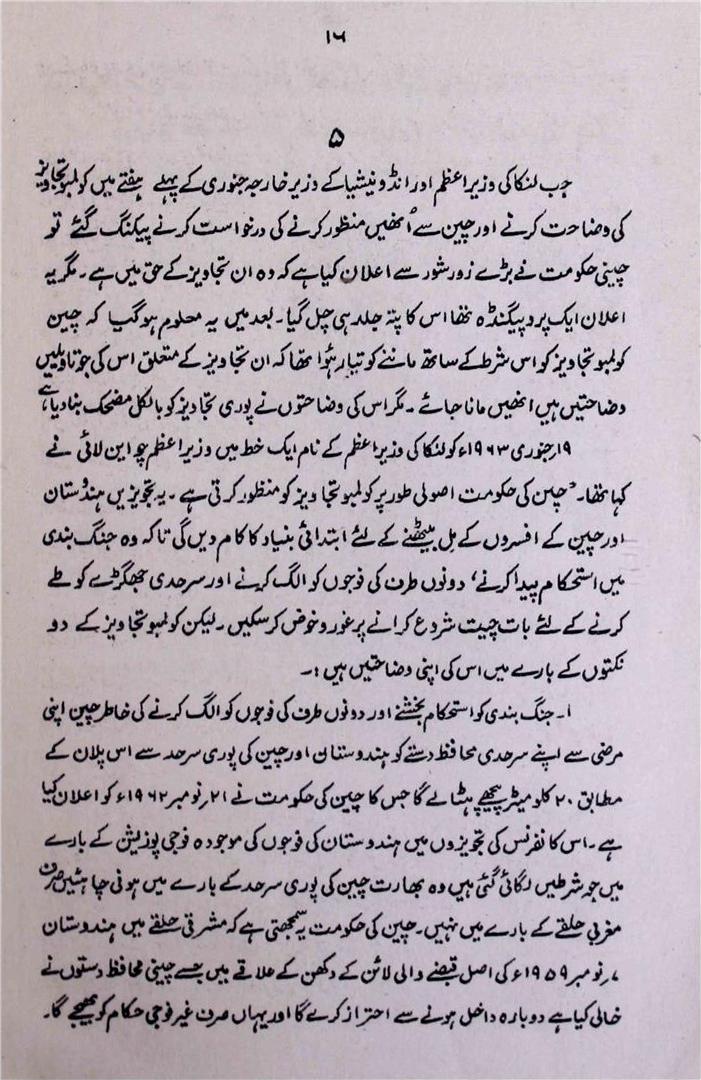 ۱۶
۵
جب لنکا کی وزیر اعظم اور انڈونیشیا کے وزیر خارجہ جنوری کے پہلے ہفتے میں کولمبو تجاویز
کی وضاحت کرنے اور چین سے اُنھیں منظور کرنے کی درخواست کرنے پیکنگ گئے تو
چینی حکومت نے بڑے زور شور سے اعلان کیا ہے کہ وہ ان تجاویز کے حق میں ہے۔ مگر یہ
اعلان ایک پروپیگنڈہ تھا اس کا پتہ جلد ہی چل گیا۔ بعد میں یہ معلوم ہو گیا کہ چین
کولمبو تجاویز کو اس شرط کے ساتھ ماننے کو تیار ہوُا تھا کہ ان تجاویز کے متعلق اس کی جو تاویلیں
وضاحتیں ہیں انھیں مانا جائے۔ مگر اس کی وضاحتوں نے پوری تجاویز کو بالکل مضحک بنا دیا ہے
۱۹ر جنوری ۱۹۶۳ء کو لنکا کی وزیر اعظم کے نام ایک خط میں وزیر اعظم چو این لائی نے
کہا تھا۔ "چین کی حکومت اصولی طور پر کولمبو تجاویز کو منظور کرتی ہے۔ یہ تجویزیں ہندوستان
اور چین کے افسروں کے مل بیٹھنے کے لئے ابتدائی بنیاد کا کام دیں گی تاکہ وہ جنگ بندی
میں استحکام پیدا کرنے، دونوں طرف کی فوجوں کو الگ کرنے اور سرحدی جھگڑے کو طے
کرنے کے لئے بات چیت شروع کرانے پر غور و خوض کر سکیں۔ لیکن کولمبو تجاویز کے دو
نکتوں کے بارے میں اس کی اپنی وضاحتیں ہیں :۔
۱۔ جنگ بندی کو استحکام بخشنے اور دونوں طرف کی فوجوں کو الگ کرنے کی خاطر چین اپنی
مرضی سے اپنے سرحدی محافظ دستے کو ہندوستان اور چین کی پوری سرحد سے اس پلان کے
مطابق ۲۰ کلومیٹر پیچھے ہٹا لے گا جس کا چین کی حکومت نے ۲۱ر نومبر ۱۹۶۲ء کو اعلان کیا
ہے۔ اس کانفرنس کی تجویزوں میں ہندوستان کی فوجوں کی موجودہ فوجی پوزیشن کے بارے
میں جو شرطیں لگائی گئی ہیں وہ بھارت چین کی پوری سرحد کے بارے میں ہونی چاہئیں صرف
مغربی حلقے کے بارے میں نہیں۔ چین کی حکومت یہ سمجھتی ہے کہ مشرقی حلقے میں ہندوستان
۷ر نومبر ۱۹۵۹ء کی اصل قبضے والی لائن کے دکھن کے علاقے میں جسے چینی محافظ دستوں نے
خالی کیا ہے دوبارہ داخل ہونے سے احتراز کرے گا اور یہاں صرف غیر فوجی حکام کو بھیجے گا۔